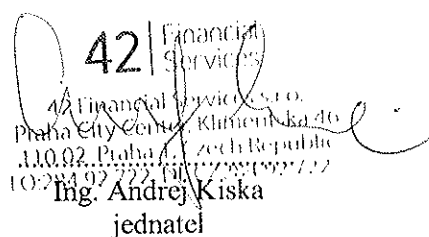 42 Financial
Services
42 Financial Services s.r.o.
Praha City Center, Klimentská 46
110 02 Praha 1, Czech Republic
Ing. Andrej Kiska
jednatel